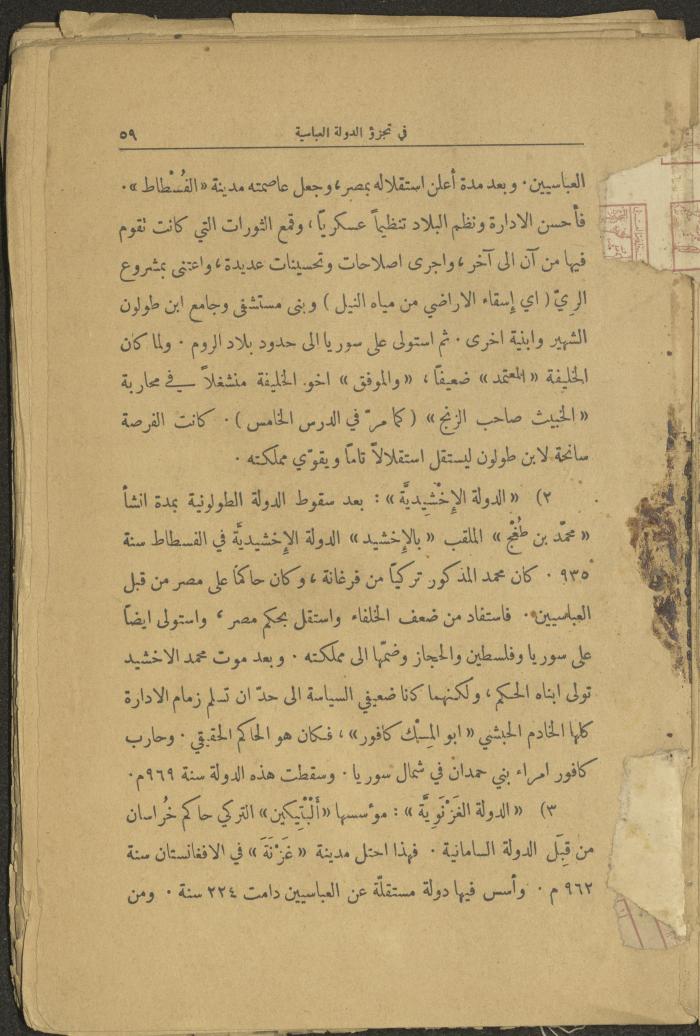 في تجزؤ الدولة العباسية ٥٩
العباسيين . وبعد مدة أعلن استقلاله بمصر ، وجعل عاصمته مدينة « الفُسْطاط » .
فأحسن الادارة ونظم البلاد تنظيماً عسكرياً ، وقمع الثورات التي كانت تقوم
فيها من آن الى آخر ، واجرى اصلاحات وتحسينات عديدة ، واعتنى بمشروع
الريّ ( اي إسقاء الاراضي من مياه النيل ) وبنى مستشفى وجامع ابن طولون
الشهير وابنية اخرى . ثم استولى على سوريا الى حدود بلاد الروم . ولما كان
الخليفة « المعتمد » ضعيفاً ، « والموفق » اخو الخليفة منشغلاً في محاربة
« الخبيث صاحب الزنج » ( كما مرّ في الدرس الخامس ) . كانت الفرصة
سانحة لابن طولون ليستقل استقلالاً تاماً ويقوّي مملكته .
٢) « الدولة الإِخْشِيدِيَّة » : بعد سقوط الدولة الطولونية بمدة انشأ
« محمّد بن طُغْج » الملقب « بالإِخشيد » الدولة الإِخشيديَّة في الفسطاط سنة
٩٣٥ . كان محمد المذكور تركياً من فرغانة ، وكان حاكماً على مصر من قبل
العباسيين . فاستفاد من ضعف الخلفاء واستقل بحكم مصر ، واستولى ايضاً
على سوريا وفلسطين والحجاز وضمّها الى مملكته . وبعد موت محمد الاخشيد
تولى ابناه الحكم ، ولكنهما كانا ضعيفي السياسة الى حدّ ان تسلم زمام الادارة
كلها الخادم الحبشي « ابو المِسْك كافور » ، فكان هو الحاكم الحقيقي . وحارب
كافور امراء بني حمدان في شمال سوريا . وسقطت هذه الدولة سنة ٩٦٩ م .
٣) « الدولة الغَزْنَوِيَّة » : مؤسسها « أَلْبْتِيكين » التركي حاكم خُراسان
من قِبَل الدولة السامانية . فهذا احتل مدينة « غَزْنَةَ » في الافغانستان سنة
٩٦٢ م . وأسس فيها دولة مستقلّة عن العباسيين دامت ٢٢٤ سنة . ومن